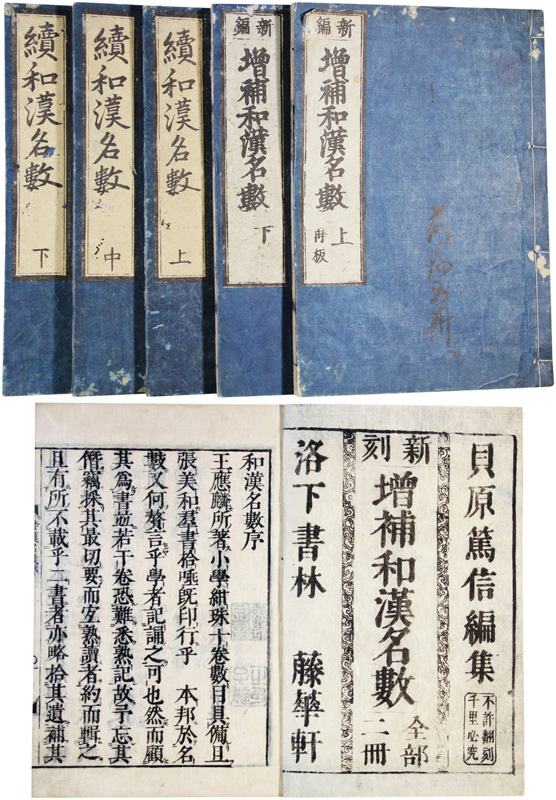 新編
增補和漢名數 上
再板
新編
增補和漢名數 下
續和漢名數 上
續和漢名數 中
續和漢名數 下
貝原篤信編集
不許翻刻
千里必究
新刻
增補和漢名數 全部二冊
洛下書林 藤華軒
和漢名數序
王應麟所著小學紺珠十卷數目具備且
張美和羣書拾唾旣印行乎 本邦於名
數又何贅言乎學者記誦之可也然而顧
其爲書逾若干卷恐難悉熟記故予忘其
僭竊採其最切要而宜熟讀者約而輯之
且有所不載乎二書者亦略拾其遺補其